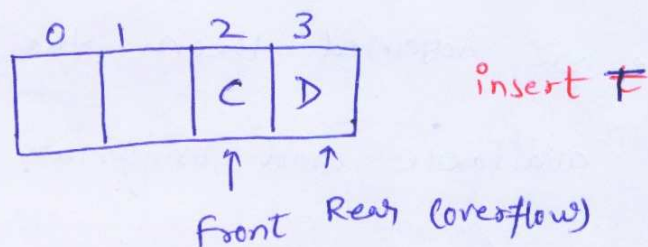 0 1 2 3
C D
insert
Front Rear (overflow)